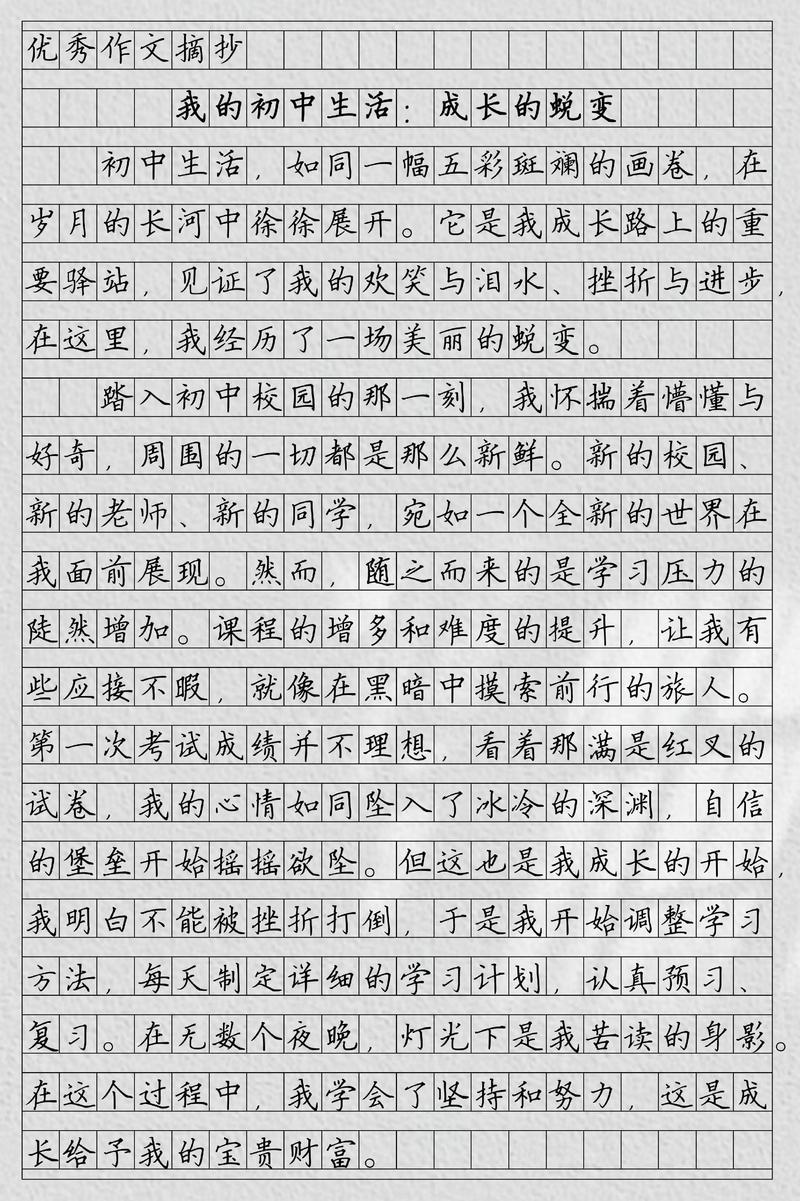 优秀作文摘抄
我的初中生活：成长的蜕变
初中生活，如同一幅五彩斑斓的画卷，在
岁月的长河中徐徐展开。它是我成长路上的重
要驿站，见证了我的欢笑与泪水、挫折与进步，
在这里，我经历了一场美丽的蜕变。
踏入初中校园的那一刻，我怀揣着懵懂与
好奇，周围的一切都是那么新鲜。新的校园、
新的老师、新的同学，宛如一个全新的世界在
我面前展现。然而，随之而来的是学习压力的
陡然增加。课程的增多和难度的提升，让我有
些应接不暇，就像在黑暗中摸索前行的旅人。
第一次考试成绩并不理想，看着那满是红叉的
试卷，我的心情如同坠入了冰冷的深渊，自信
的堡垒开始摇摇欲坠。但这也是我成长的开始，
我明白不能被挫折打倒，于是我开始调整学习
方法，每天制定详细的学习计划，认真预习、
复习。在无数个夜晚，灯光下是我苦读的身影。
在这个过程中，我学会了坚持和努力，这是成
长给予我的宝贵财富。